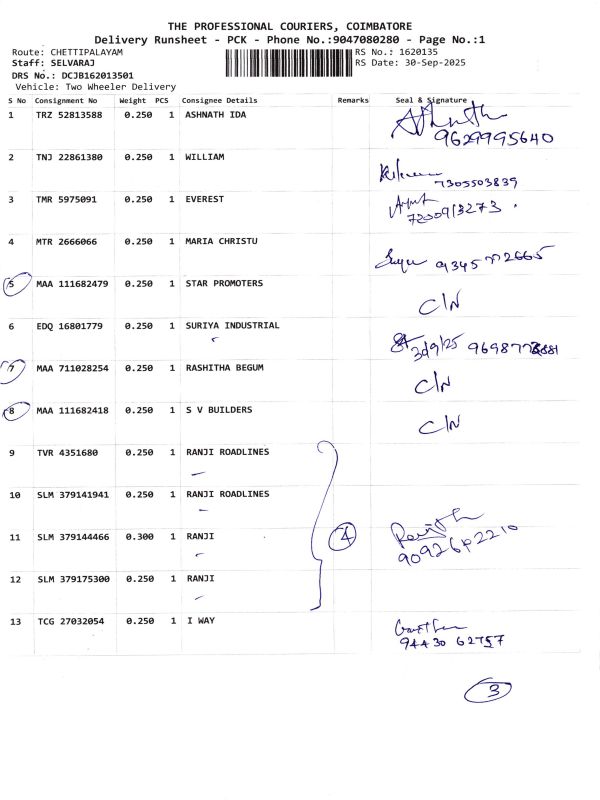 THE PROFESSIONAL COURIERS, COIMBATORE
Delivery Runsheet - PCK - Phone No.:9047080280 - Page No.:1
Route: CHETTIPALAYAM RS No.: 1620135
Staff: SELVARAJ RS Date: 30-Sep-2025
DRS No.: DCJB162013501
Vehicle: Two Wheeler Delivery
S No Consignment No Weight PCS Consignee Details Remarks Seal & Signature
1 TRZ 52813588 0.250 1 ASHNATH IDA
9629995640
2 TNJ 22861380 0.250 1 WILLIAM
7305503839
3 TMR 5975091 0.250 1 EVEREST
7200913273
4 MTR 2666066 0.250 1 MARIA CHRISTU
9345772665
5 MAA 111682479 0.250 1 STAR PROMOTERS
C/N
6 EDQ 16801779 0.250 1 SURIYA INDUSTRIAL
7 MAA 711028254 0.250 1 RASHITHA BEGUM
C/N
8 MAA 111682418 0.250 1 S V BUILDERS
C/N
9 TVR 4351680 0.250 1 RANJI ROADLINES
10 SLM 379141941 0.250 1 RANJI ROADLINES
11 SLM 379144466 0.300 1 RANJI 4
12 SLM 379175300 0.250 1 RANJI
13 TCG 27032054 0.250 1 I WAY
94430 62757
3